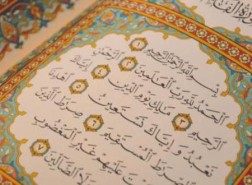 بِسْمِ اللَّهِ الرَّحْمَٰنِ الرَّحِيمِ ١
الْحَمْدُ لِلَّهِ رَبِّ الْعَالَمِينَ ٢ الرَّحْمَٰنِ
الرَّحِيمِ ٣ مَالِكِ يَوْمِ الدِّينِ ٤ إِيَّاكَ
نَعْبُدُ وَإِيَّاكَ نَسْتَعِينُ ٥ اهْدِنَا
الْمُسْتَقِيمَ ٦ صِرَاطَ الَّذِينَ
عَلَيْهِمْ غَيْرِ الْمَغْضُوبِ
لَا الضَّالِّينَ ٧